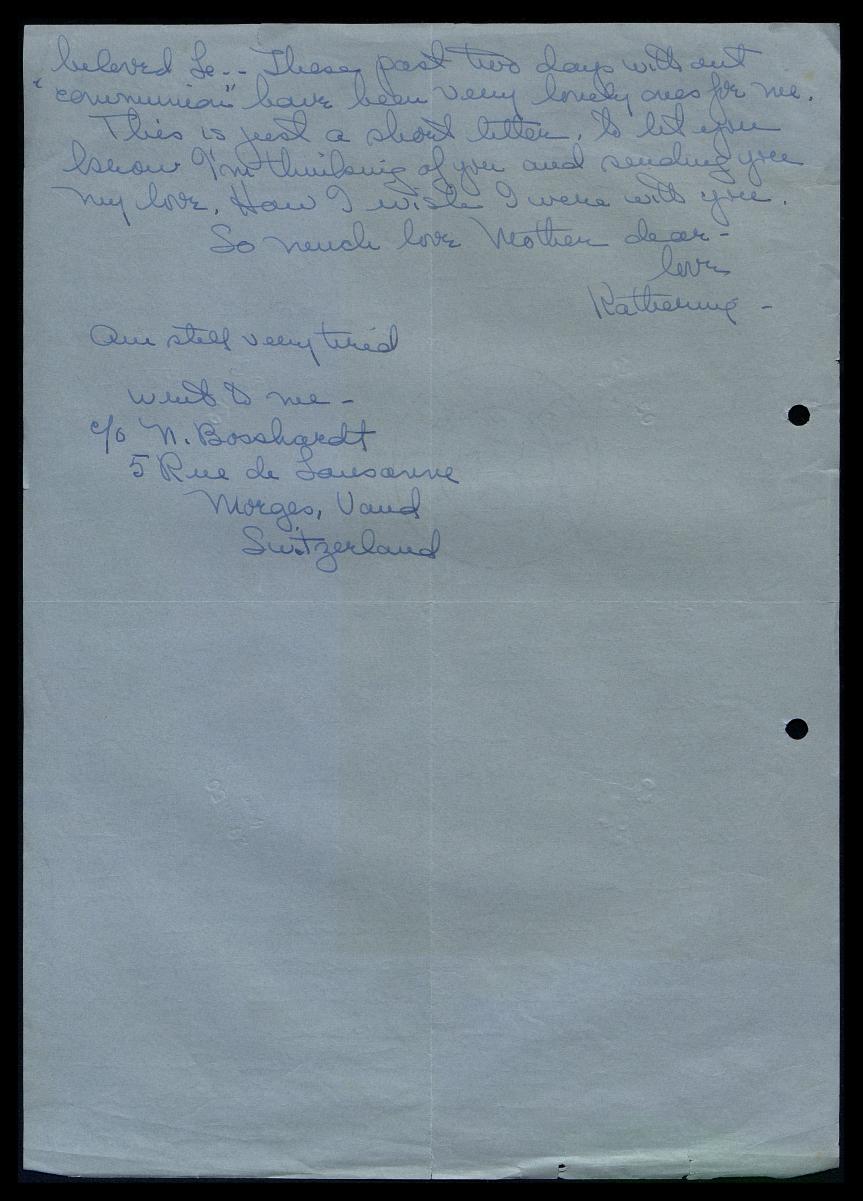 beloved Le.. These past two days without
"communion" have been very lonely ones for me.
This is just a short letter, to let you
know I'm thinking of you and sending you
my love. How I wish I were with you.
So much love Mother dear -
love
Katherine -
Am still very tired
write to me -
c/o N. Bosshardt
5 Rue de Lausanne
Morges, Vaud
Switzerland